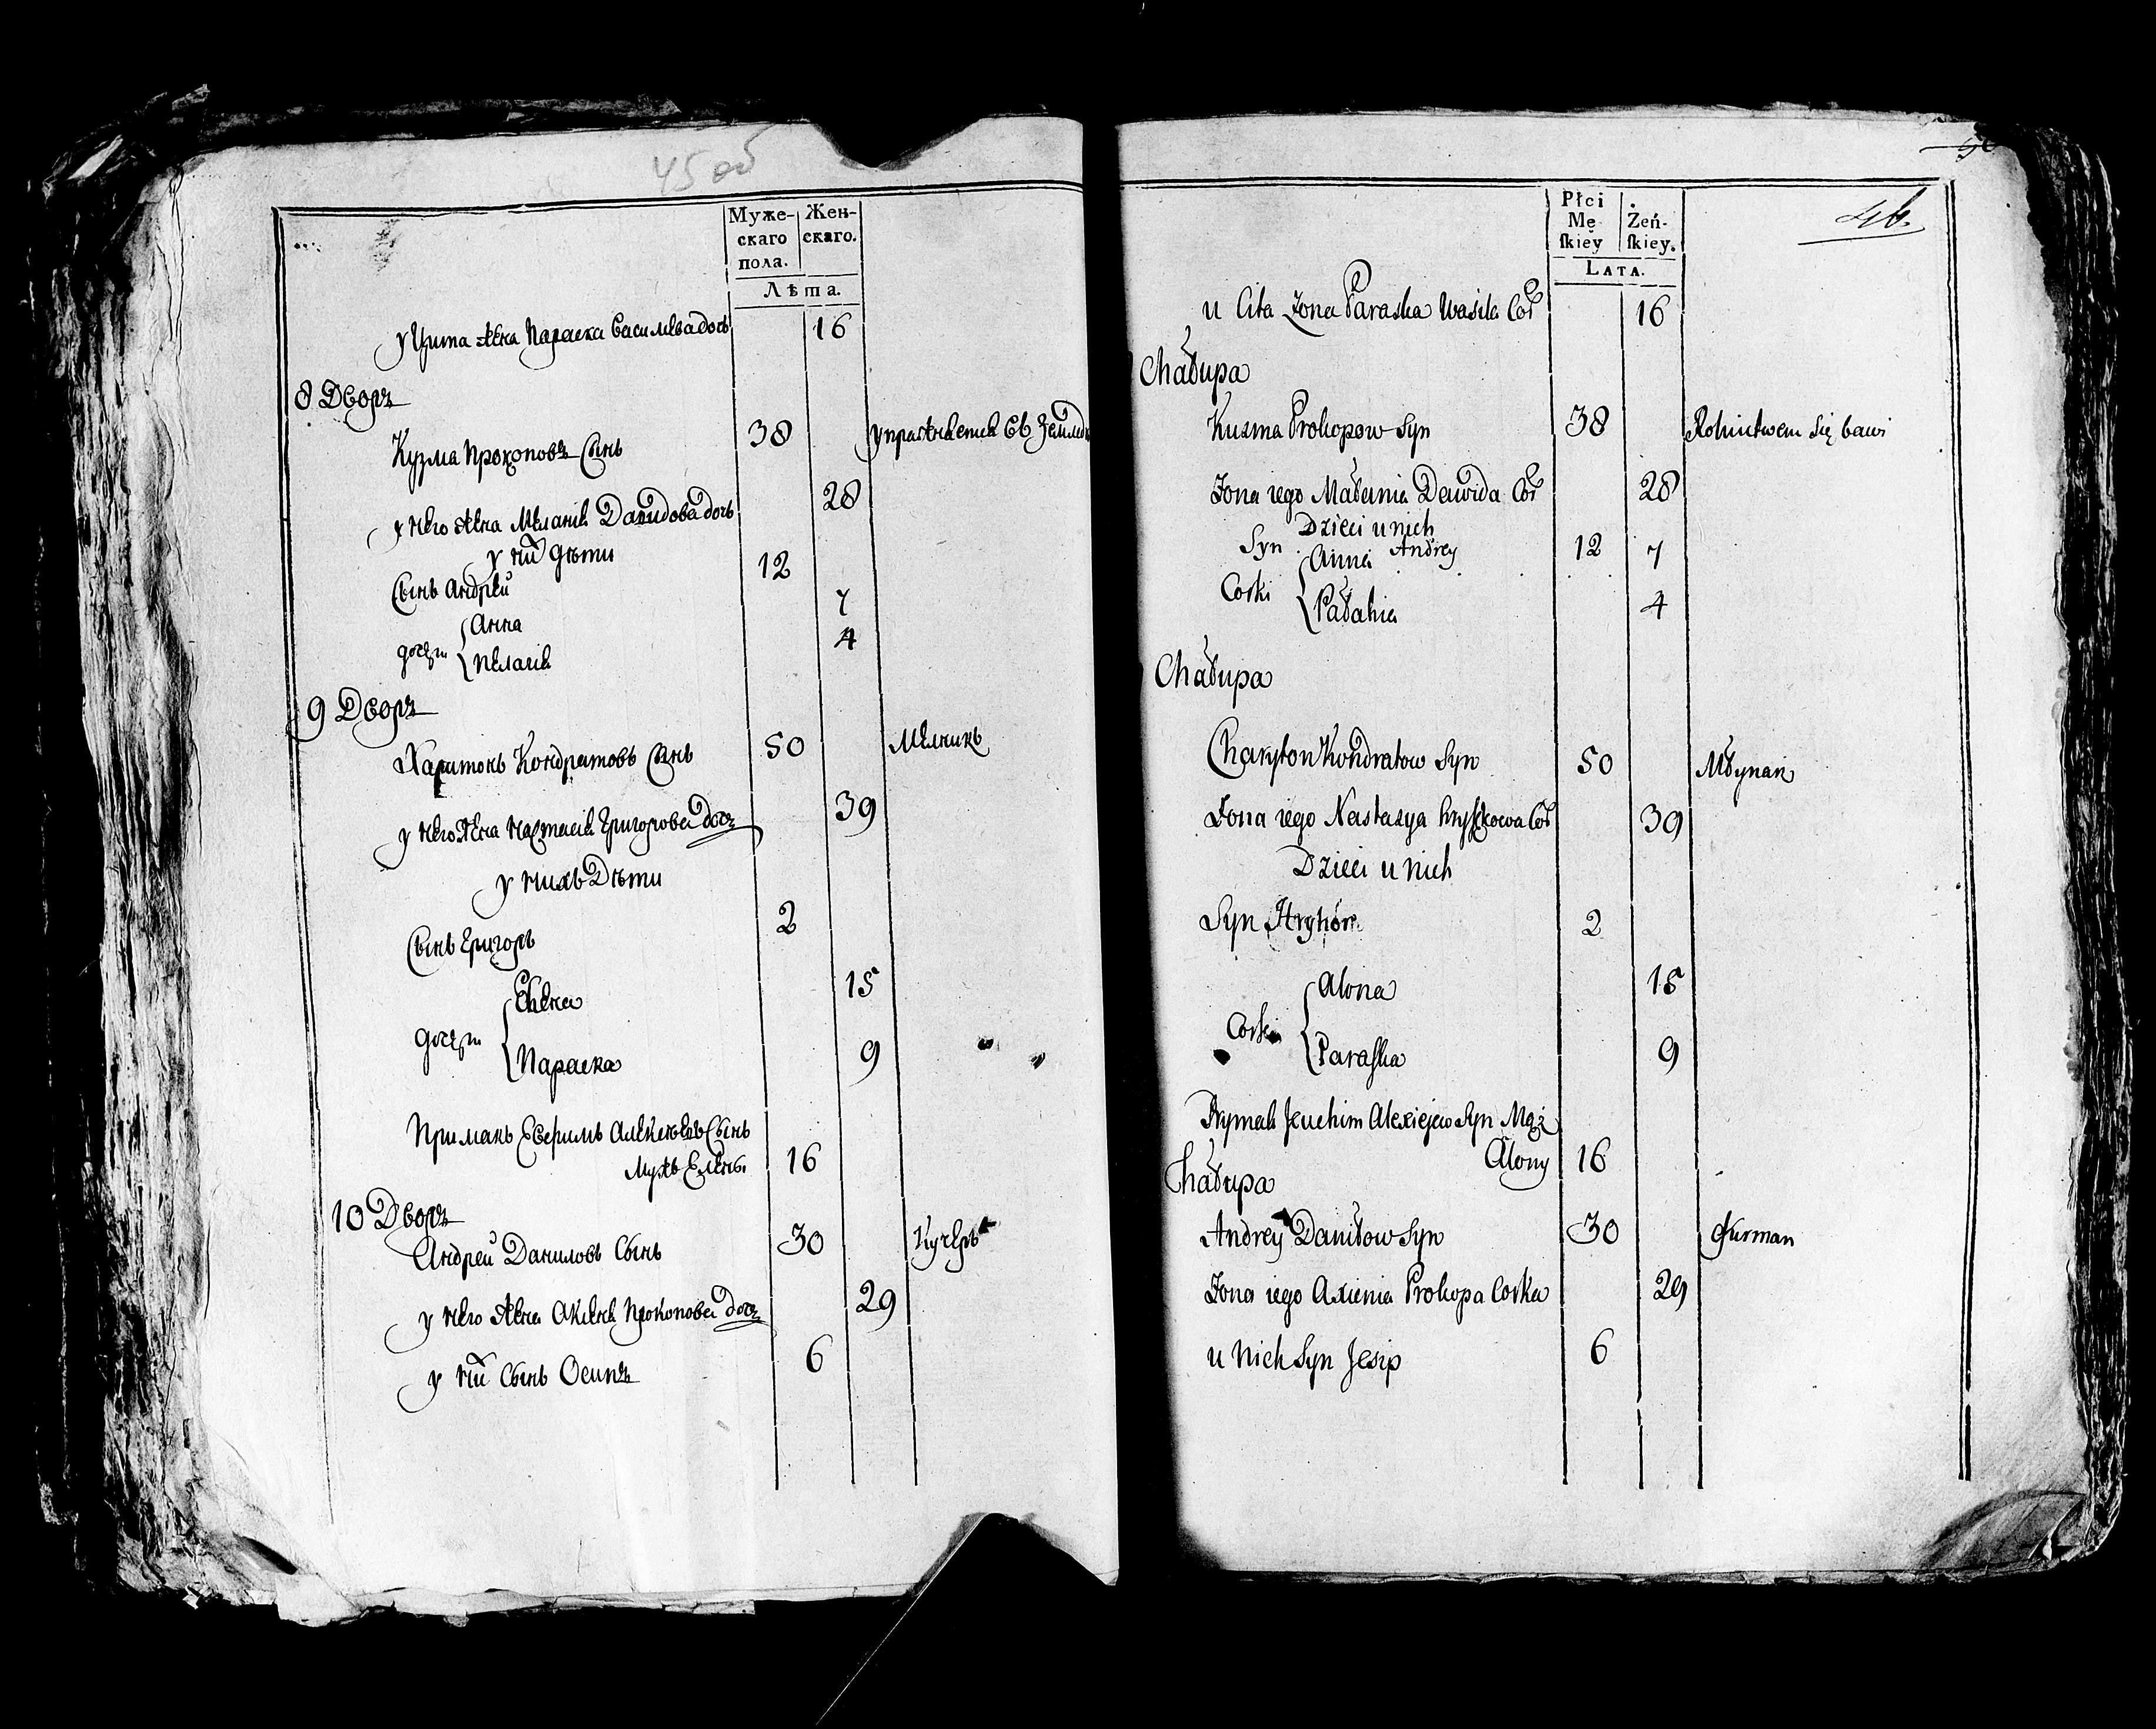 45 об
Муже-
скаго
пола.
Жен-
скаго.
Лѣта.
у Цита жена Параска Василева дочь 16
8 Дворъ
Кузма Прокоповъ Сынъ 38
у него жена Меланія Давидова дочь 28
у них дѣти
Сынъ Андрей 12
Анна 7
дочери
Пелагія 4
9 Дворъ
Харитонъ Кондратовъ Сынъ 50 Мелникъ
у него жена Настасія Григорова дочь 39
у нихъ Дѣти
Сынъ Григоръ 2
Елена 15
дочери
Параска 9
Примакъ Алексѣевъ Сынъ
Мужъ Елены 16
10 Дворъ
Андрей Даниловъ Сынъ 30 Кучеръ
у него жена Аксеня Прокопова дочь 29
у них Сынъ Осипъ 6
46.
Płci
Mę
ſkiey
Żeń-
ſkiey.
LATA.
u Cita Żona Paraska Wasila Cor 16
Chałupa
Kusma Prokopow Syn 38 Rolnictwem się bawi
Żona iego Małania Dawida Cor 28
Dzieci u nich
Syn Andrey 12
Anna 7
Corki
Pałahia 4
Chałupa
Charyton Kondratow Syn 50 Młynarz
Żona iego Nastazya Hryszkowa Cor 39
Dzieci u Nich
Syn Hryhor 2
Alona 15
Corki
Paraſka 9
Prymak Jeuchim Alexiejew Syn Mąż
Alony 16
Chałupa
Andrey Daniłow Syn 30 Furman
Żona iego Axienia Prokopa Corka 29
u Nich Syn Jesip 6